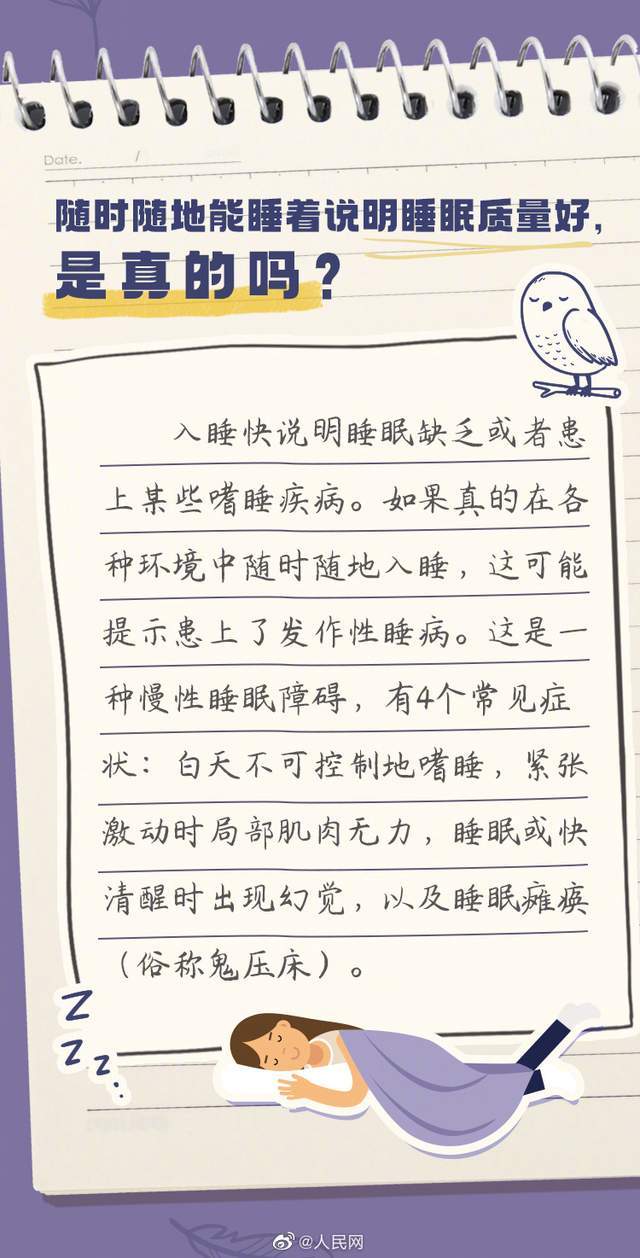 Date.    /
随时随地能睡着说明睡眠质量好,
是真的吗?
入睡快说明睡眠缺乏或者患
上某些嗜睡疾病。如果真的在各
种环境中随时随地入睡，这可能
提示患上了发作性睡病。这是一
种慢性睡眠障碍，有4个常见症
状：白天不可控制地嗜睡，紧张
激动时局部肌肉无力，睡眠或快
清醒时出现幻觉，以及睡眠瘫痪
（俗称鬼压床）。
Z
Z
Z..
@人民网